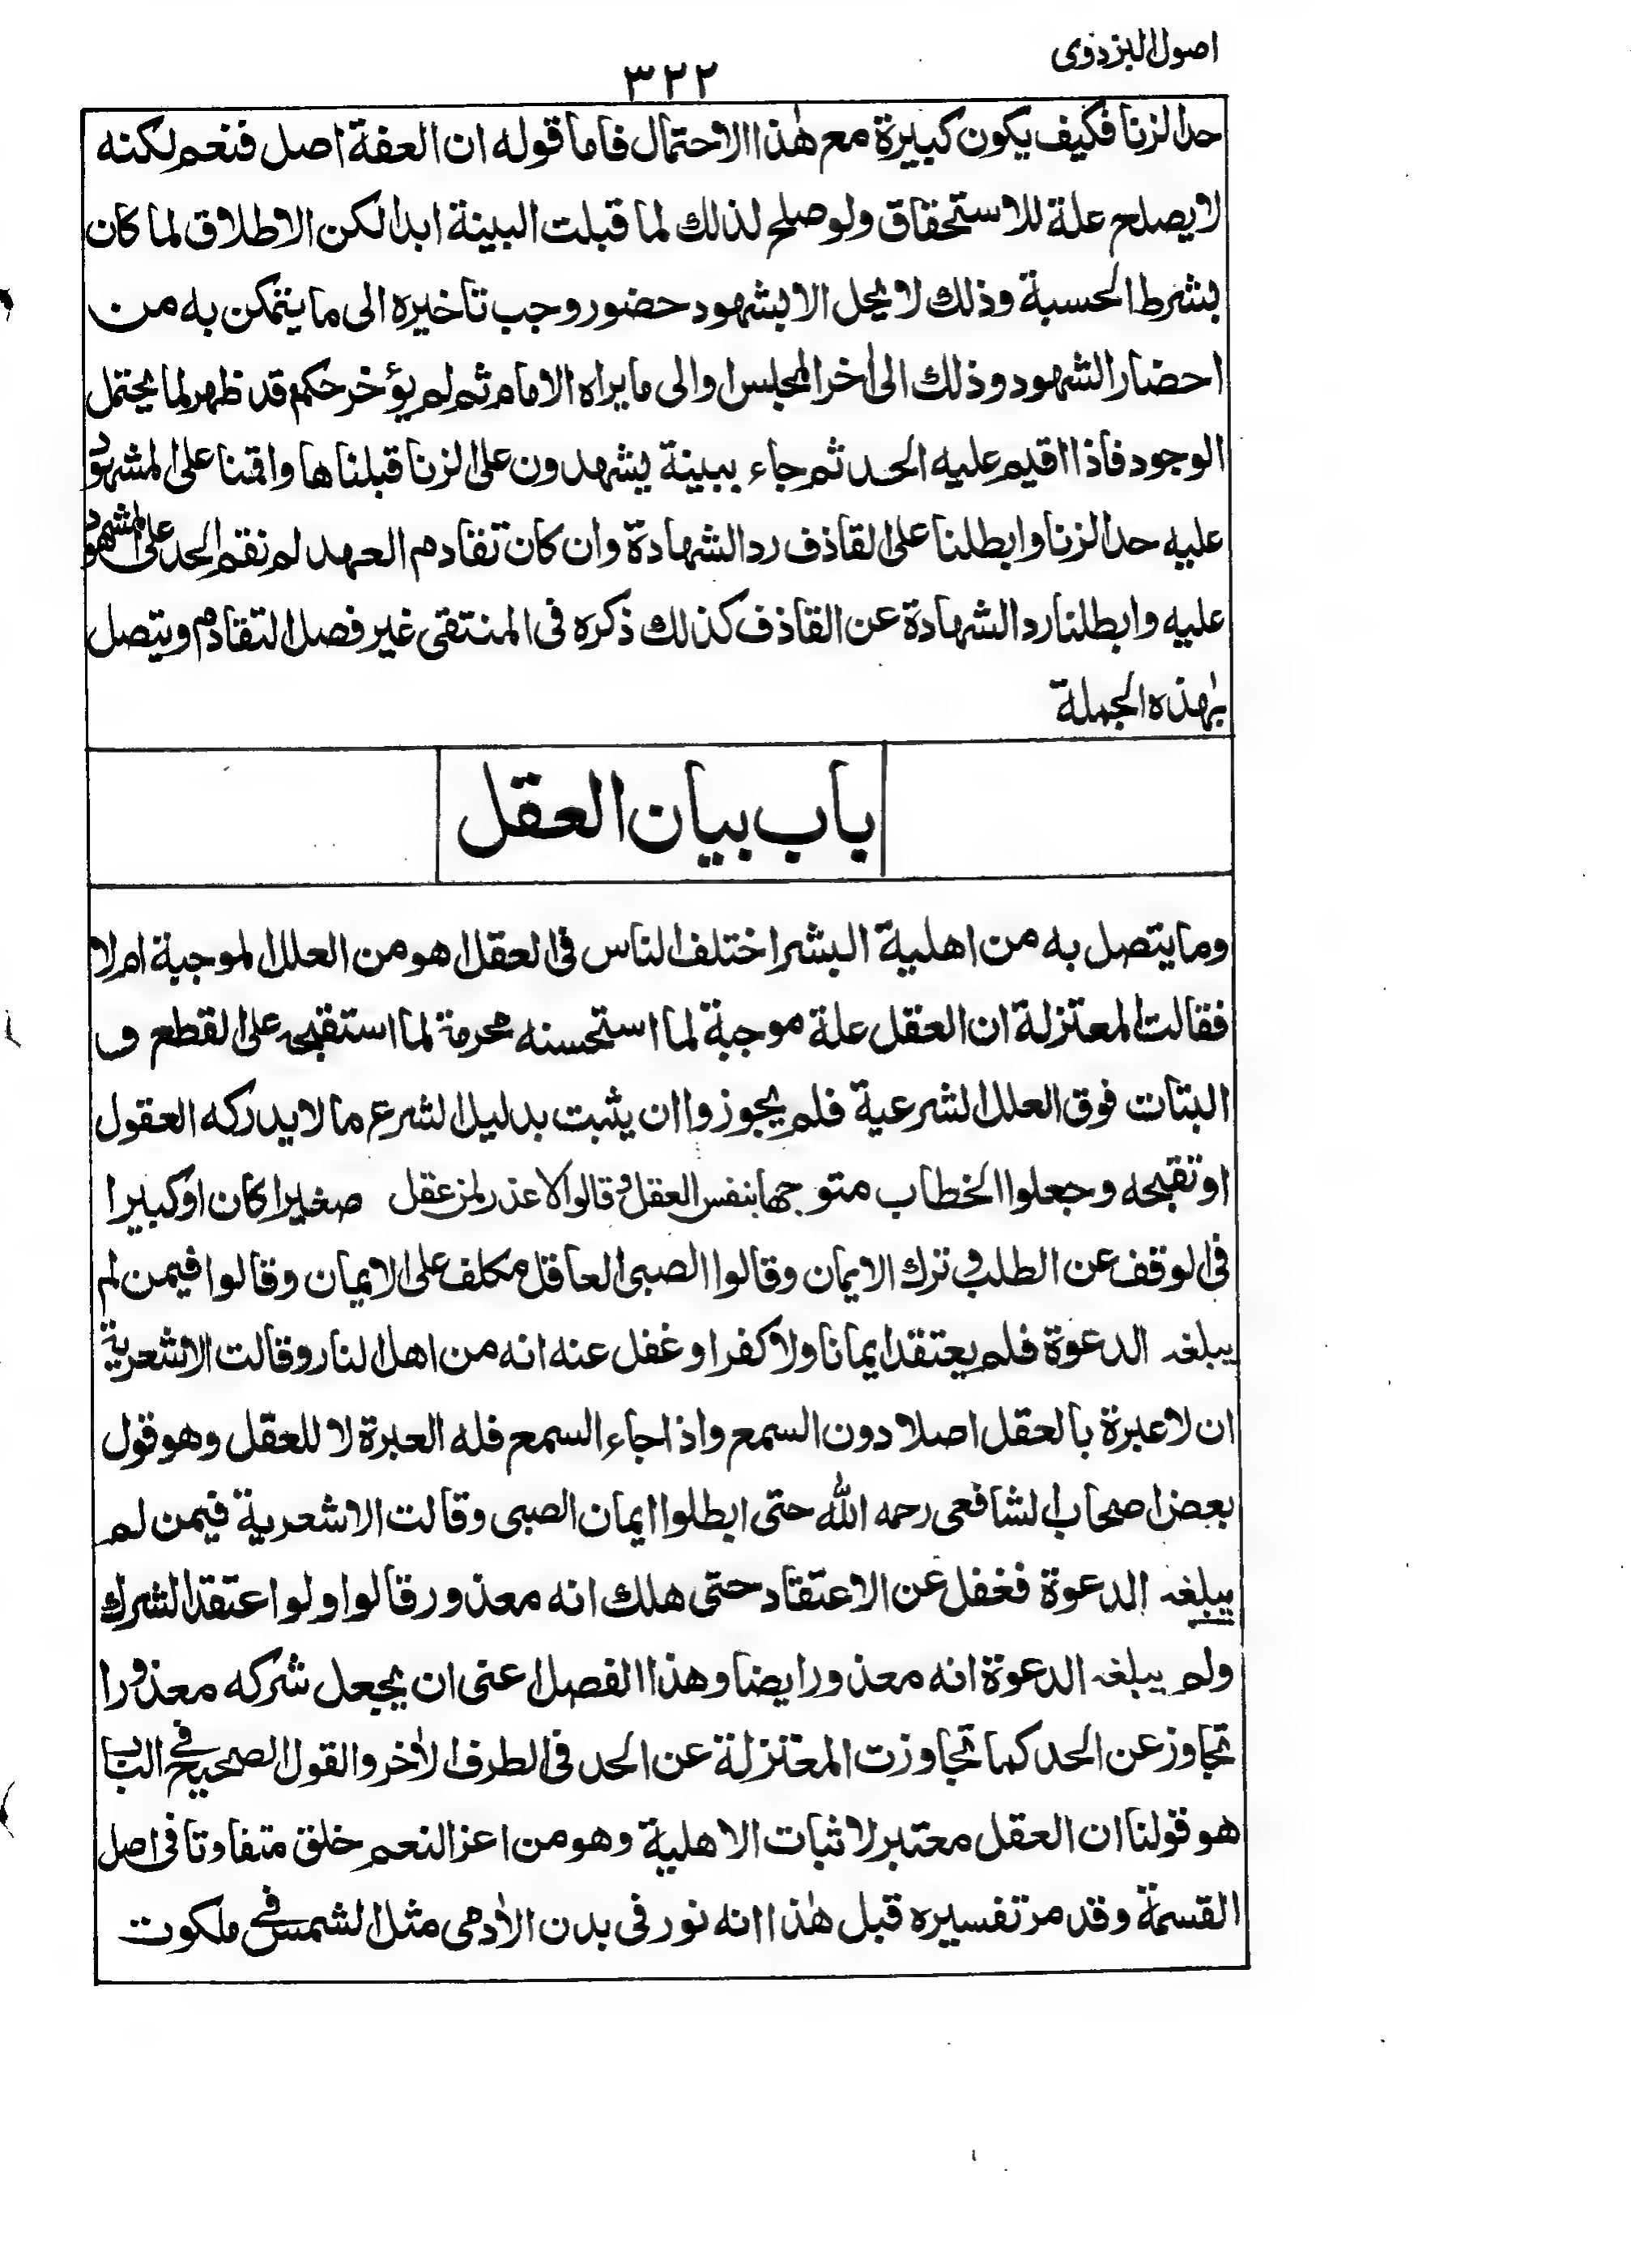 اصول البزدوى
٣٢٢
حد الزنا فكيف يكون كبيرة مع هٰذا الاحتمال فاما قوله ان العفة اصل فنعم لكنه
لا يصلح علة للاستحقاق ولو صلح لذلك لما قبلت البينة ابدا لكن الاطلاق لما كان
بشرط الحسبة وذلك لا يحل الا بشهود حضور وجب تاخيره الى ما يتمكن به من
احضار الشهود وذلك الى اٰخر المجلس او الى ما يراه الامام ثم لم يؤخر حكم قد ظهر لما يحتمل
الوجود فاذا اقيم عليه الحد ثم جاء ببينة يشهدون على الزنا قبلناها واقمنا على المشهود
عليه حد الزنا وابطلنا على القاذف رد الشهادة وان كان تقادم العهد لم نقم الحد على المشهود
عليه وابطلنا رد الشهادة عن القاذف كذلك ذكره فى المنتقى غير فصل التقادم ويتصل
بهٰذه الجملة
باب بيان العقل
وما يتصل به من اهلية البشر اختلف الناس فى العقل اهو من العلل الموجبة ام لا
فقالت المعتزلة ان العقل علة موجبة لما استحسنه محرمة لما استقبحه على القطع و
البتات فوق العلل الشرعية فلم يجوزوا ان يثبت بدليل الشرع ما لا يدركه العقول
او تقبحه وجعلوا الخطاب متوجها بنفس العقل وقالوا لا عذر لمن عقل صغيرا كان او كبيرا
فى الوقف عن الطلب و ترك الايمان وقالوا الصبى العاقل مكلف على الايمان وقالوا فيمن لم
يبلغه الدعوة فلم يعتقد ايمانا ولا كفرا و غفل عنه انه من اهل النار وقالت الاشعرية
ان لا عبرة بالعقل اصلا دون السمع واذا جاء السمع فله العبرة لا للعقل وهو قول
بعض اصحاب الشافعى رحمه الله حتى ابطلوا ايمان الصبى وقالت الاشعرية فيمن لم
يبلغه الدعوة فغفل عن الاعتقاد حتى هلك انه معذور قالوا ولو اعتقد الشرك
ولم يبلغه الدعوة انه معذور ايضا وهذا الفصل اعنى ان يجعل شركه معذورا
تجاوز عن الحد كما تجاوزت المعتزلة عن الحد فى الطرف الاٰخر والقول الصحيح فى الباب
هو قولنا ان العقل معتبر لاثبات الاهلية وهو من اعز النعم خلق متفاوتا فى اصل
القسمة وقد مر تفسيره قبل هٰذا انه نور فى بدن الاٰدمى مثل الشمس فى ملكوت